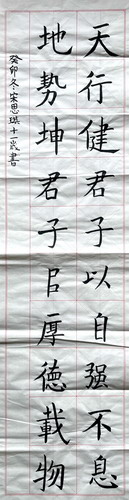 天行健君子以自强不息
地勢坤君子㠯厚德載物
癸卯冬宋思琪十一歲書